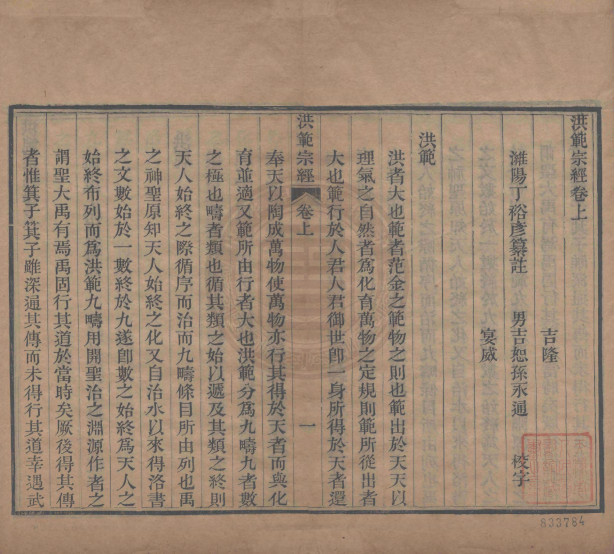 洪範宗經卷上
濰陽丁裕彥纂註
吉隆
男吉恕孫永通
宴威
校字
洪範
洪者大也範者范金之範物之則也範出於天天以
理氣之自然者爲化育萬物之定規則範所從出者
大也範行於人君人君御世卽一身所得於天者還
洪範宗經
卷上
一
奉天以陶成萬物使萬物亦行其得於天者而與化
育並適又範所由行者大也洪範分爲九疇九者數
之極也疇者類也循其類之始以遞及其類之終則
天人始終之際循序而治而九疇條目所由列也禹
之神聖原知天人始終之化又自治水以來得洛書
之文數始於一數終於九遂卽數之始終爲天人之
始終布列而爲洪範九疇用開聖治之淵源作者之
謂聖大禹有焉禹固行其道於當時矣厥後得其傳
者惟箕子箕子雖深通其傳而未得行其道幸遇武
833784